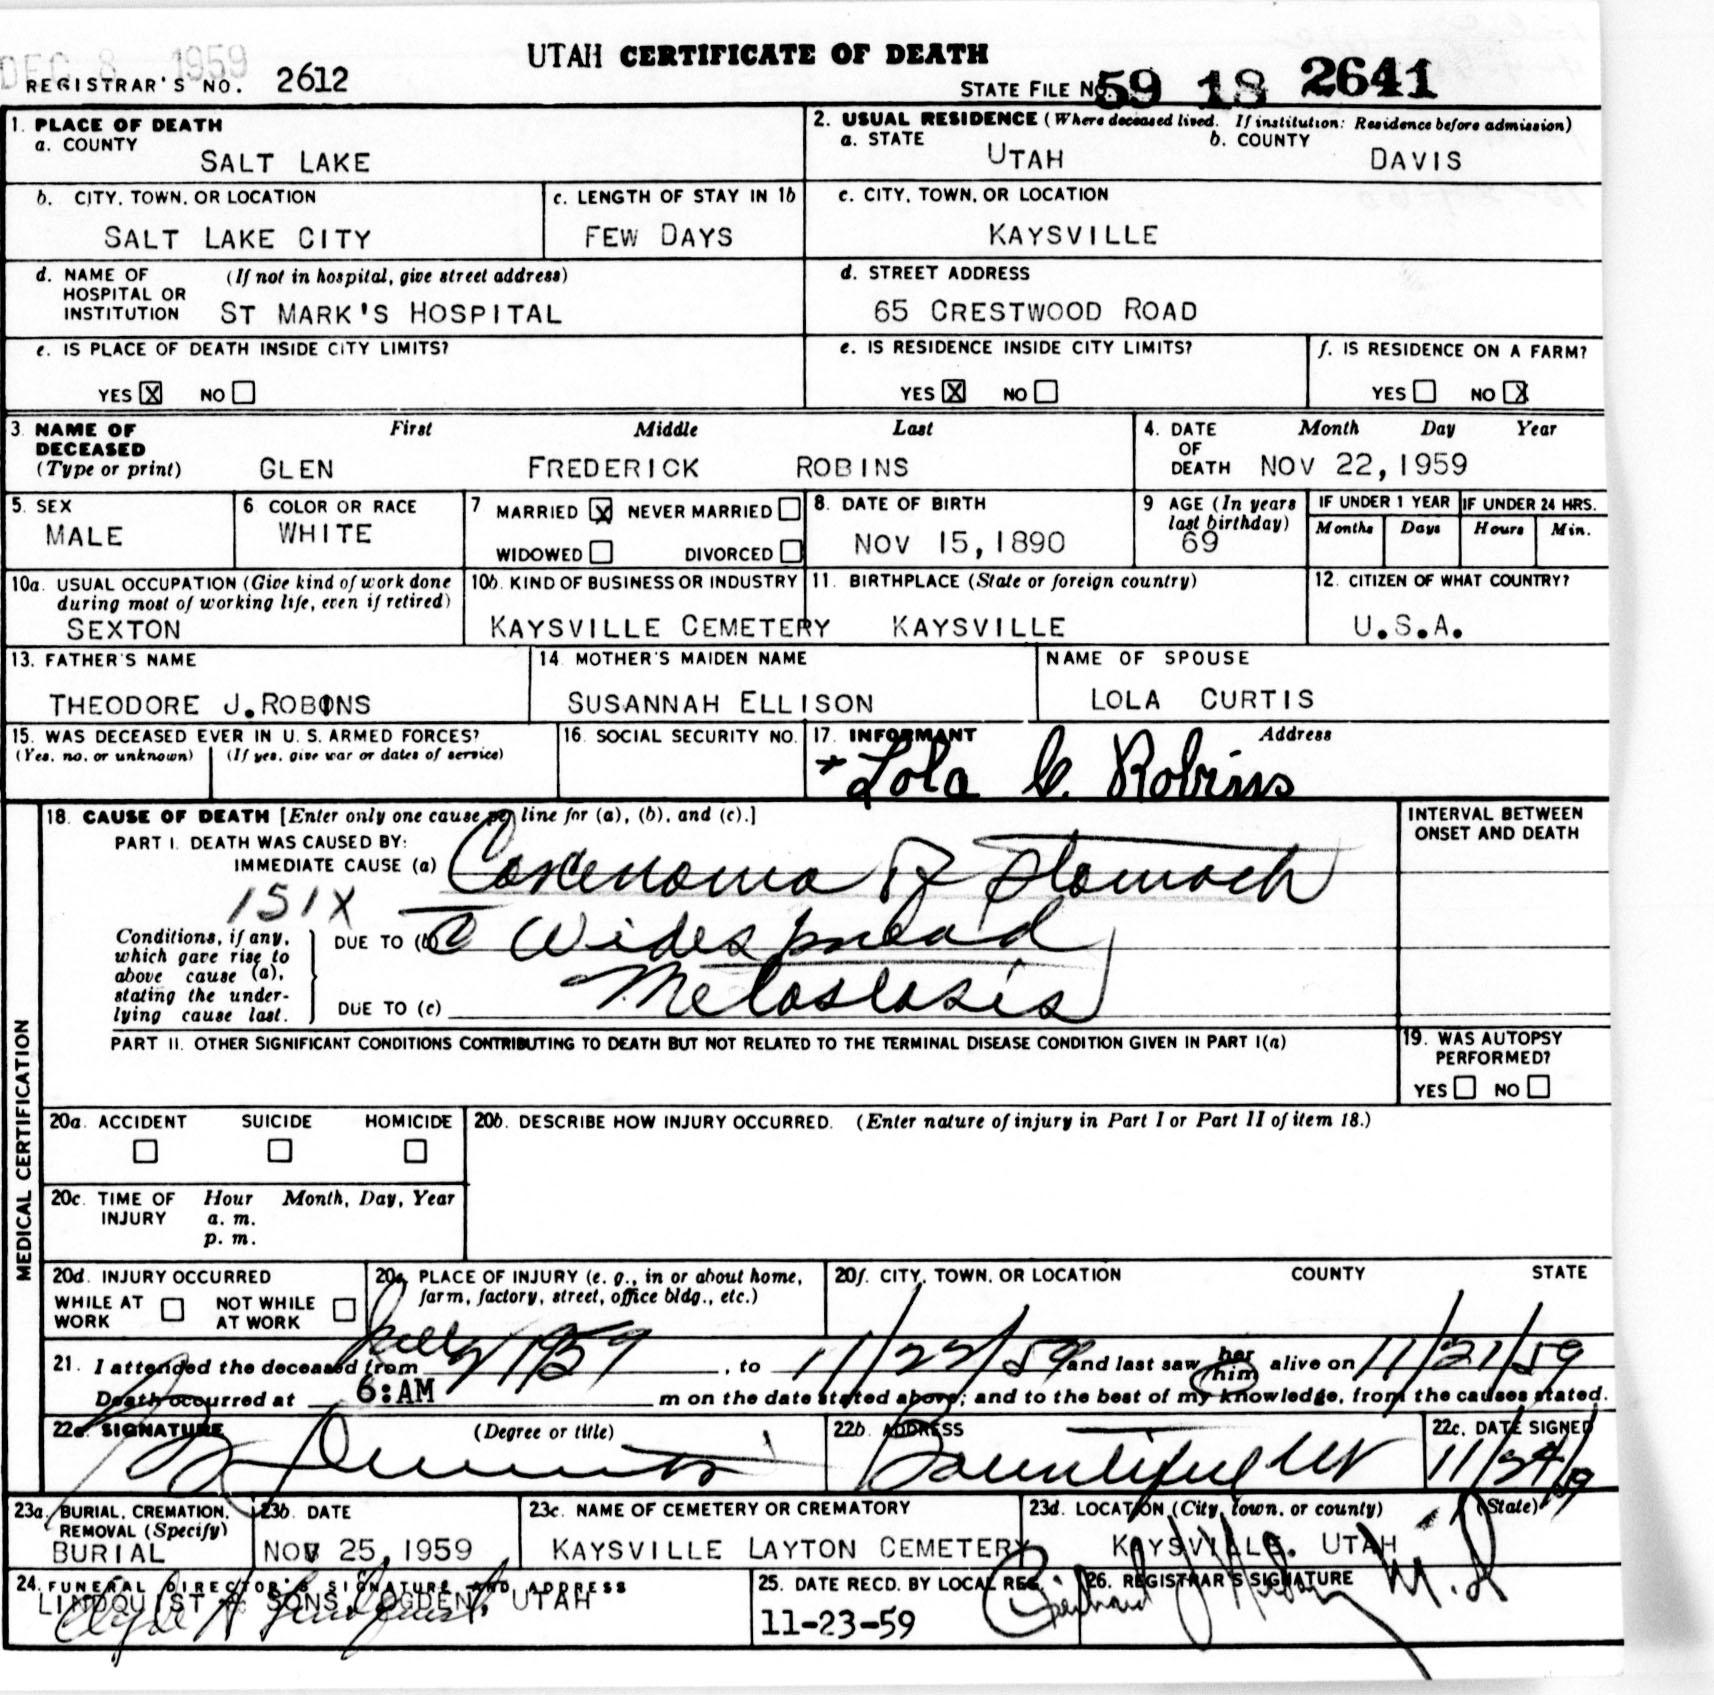 DEC 8 1959
UTAH CERTIFICATE OF DEATH
REGISTRAR'S NO. 2612
STATE FILE NO. 59 18 2641
1. PLACE OF DEATH
a. COUNTY
SALT LAKE
2. USUAL RESIDENCE (Where deceased lived. If institution: Residence before admission)
a. STATE UTAH b. COUNTY DAVIS
b. CITY, TOWN, OR LOCATION
SALT LAKE CITY
c. LENGTH OF STAY IN 1b
FEW DAYS
c. CITY, TOWN, OR LOCATION
KAYSVILLE
d. NAME OF HOSPITAL OR INSTITUTION (If not in hospital, give street address)
ST MARK'S HOSPITAL
d. STREET ADDRESS
65 CRESTWOOD ROAD
e. IS PLACE OF DEATH INSIDE CITY LIMITS?
YES X NO
e. IS RESIDENCE INSIDE CITY LIMITS?
YES X NO
f. IS RESIDENCE ON A FARM?
YES NO X
3. NAME OF DECEASED (Type or print) First Middle Last
GLEN FREDERICK ROBINS
4. DATE OF DEATH Month Day Year
NOV 22, 1959
5. SEX
MALE
6 COLOR OR RACE
WHITE
7 MARRIED X NEVER MARRIED
WIDOWED DIVORCED
8. DATE OF BIRTH
NOV 15, 1890
9 AGE (In years last birthday)
69
IF UNDER 1 YEAR IF UNDER 24 HRS.
Months Days Hours Min.
10a. USUAL OCCUPATION (Give kind of work done during most of working life, even if retired)
SEXTON
10b. KIND OF BUSINESS OR INDUSTRY
KAYSVILLE CEMETERY
11. BIRTHPLACE (State or foreign country)
KAYSVILLE
12. CITIZEN OF WHAT COUNTRY?
U.S.A.
13. FATHER'S NAME
THEODORE J.ROBINS
14. MOTHER'S MAIDEN NAME
SUSANNAH ELLISON
NAME OF SPOUSE
LOLA CURTIS
15. WAS DECEASED EVER IN U. S. ARMED FORCES?
(Yes, no, or unknown) (If yes, give war or dates of service)
16. SOCIAL SECURITY NO.
17. INFORMANT Address
+ Lola C. Robins
MEDICAL CERTIFICATION
18. CAUSE OF DEATH [Enter only one cause per line for (a), (b), and (c).]
INTERVAL BETWEEN ONSET AND DEATH
PART I. DEATH WAS CAUSED BY:
IMMEDIATE CAUSE (a) Carcenoma of Stomach
151X
Conditions, if any, which gave rise to above cause (a), stating the underlying cause last.
DUE TO (b) c̄ Widespread
Metastasis
DUE TO (c)
PART II. OTHER SIGNIFICANT CONDITIONS CONTRIBUTING TO DEATH BUT NOT RELATED TO THE TERMINAL DISEASE CONDITION GIVEN IN PART I(a)
19. WAS AUTOPSY PERFORMED?
YES NO
20a. ACCIDENT SUICIDE HOMICIDE
20b. DESCRIBE HOW INJURY OCCURRED. (Enter nature of injury in Part I or Part II of item 18.)
20c. TIME OF INJURY Hour Month, Day, Year
a. m.
p. m.
20d. INJURY OCCURRED
WHILE AT WORK NOT WHILE AT WORK
20e. PLACE OF INJURY (e. g., in or about home, farm, factory, street, office bldg., etc.)
20f. CITY, TOWN, OR LOCATION COUNTY STATE
21. I attended the deceased from 1959, to 11/22/59 and last saw her him alive on 11/21/59
Death occurred at 6:AM m on the date stated above; and to the best of my knowledge, from the causes stated.
22a. SIGNATURE (Degree or title)
22b. ADDRESS
Bountiful Ut
22c. DATE SIGNED
11/24/59
23a. BURIAL, CREMATION, REMOVAL (Specify)
BURIAL
23b. DATE
NOV 25, 1959
23c. NAME OF CEMETERY OR CREMATORY
KAYSVILLE LAYTON CEMETERY
23d. LOCATION (City, town, or county) (State)
KAYSVILLE. UTAH
24. FUNERAL DIRECTOR'S SIGNATURE AND ADDRESS
LINDQUIST & SONS, OGDEN, UTAH
Clyde A Lindquist
25. DATE RECD. BY LOCAL REG.
11-23-59
26. REGISTRAR'S SIGNATURE
M.D